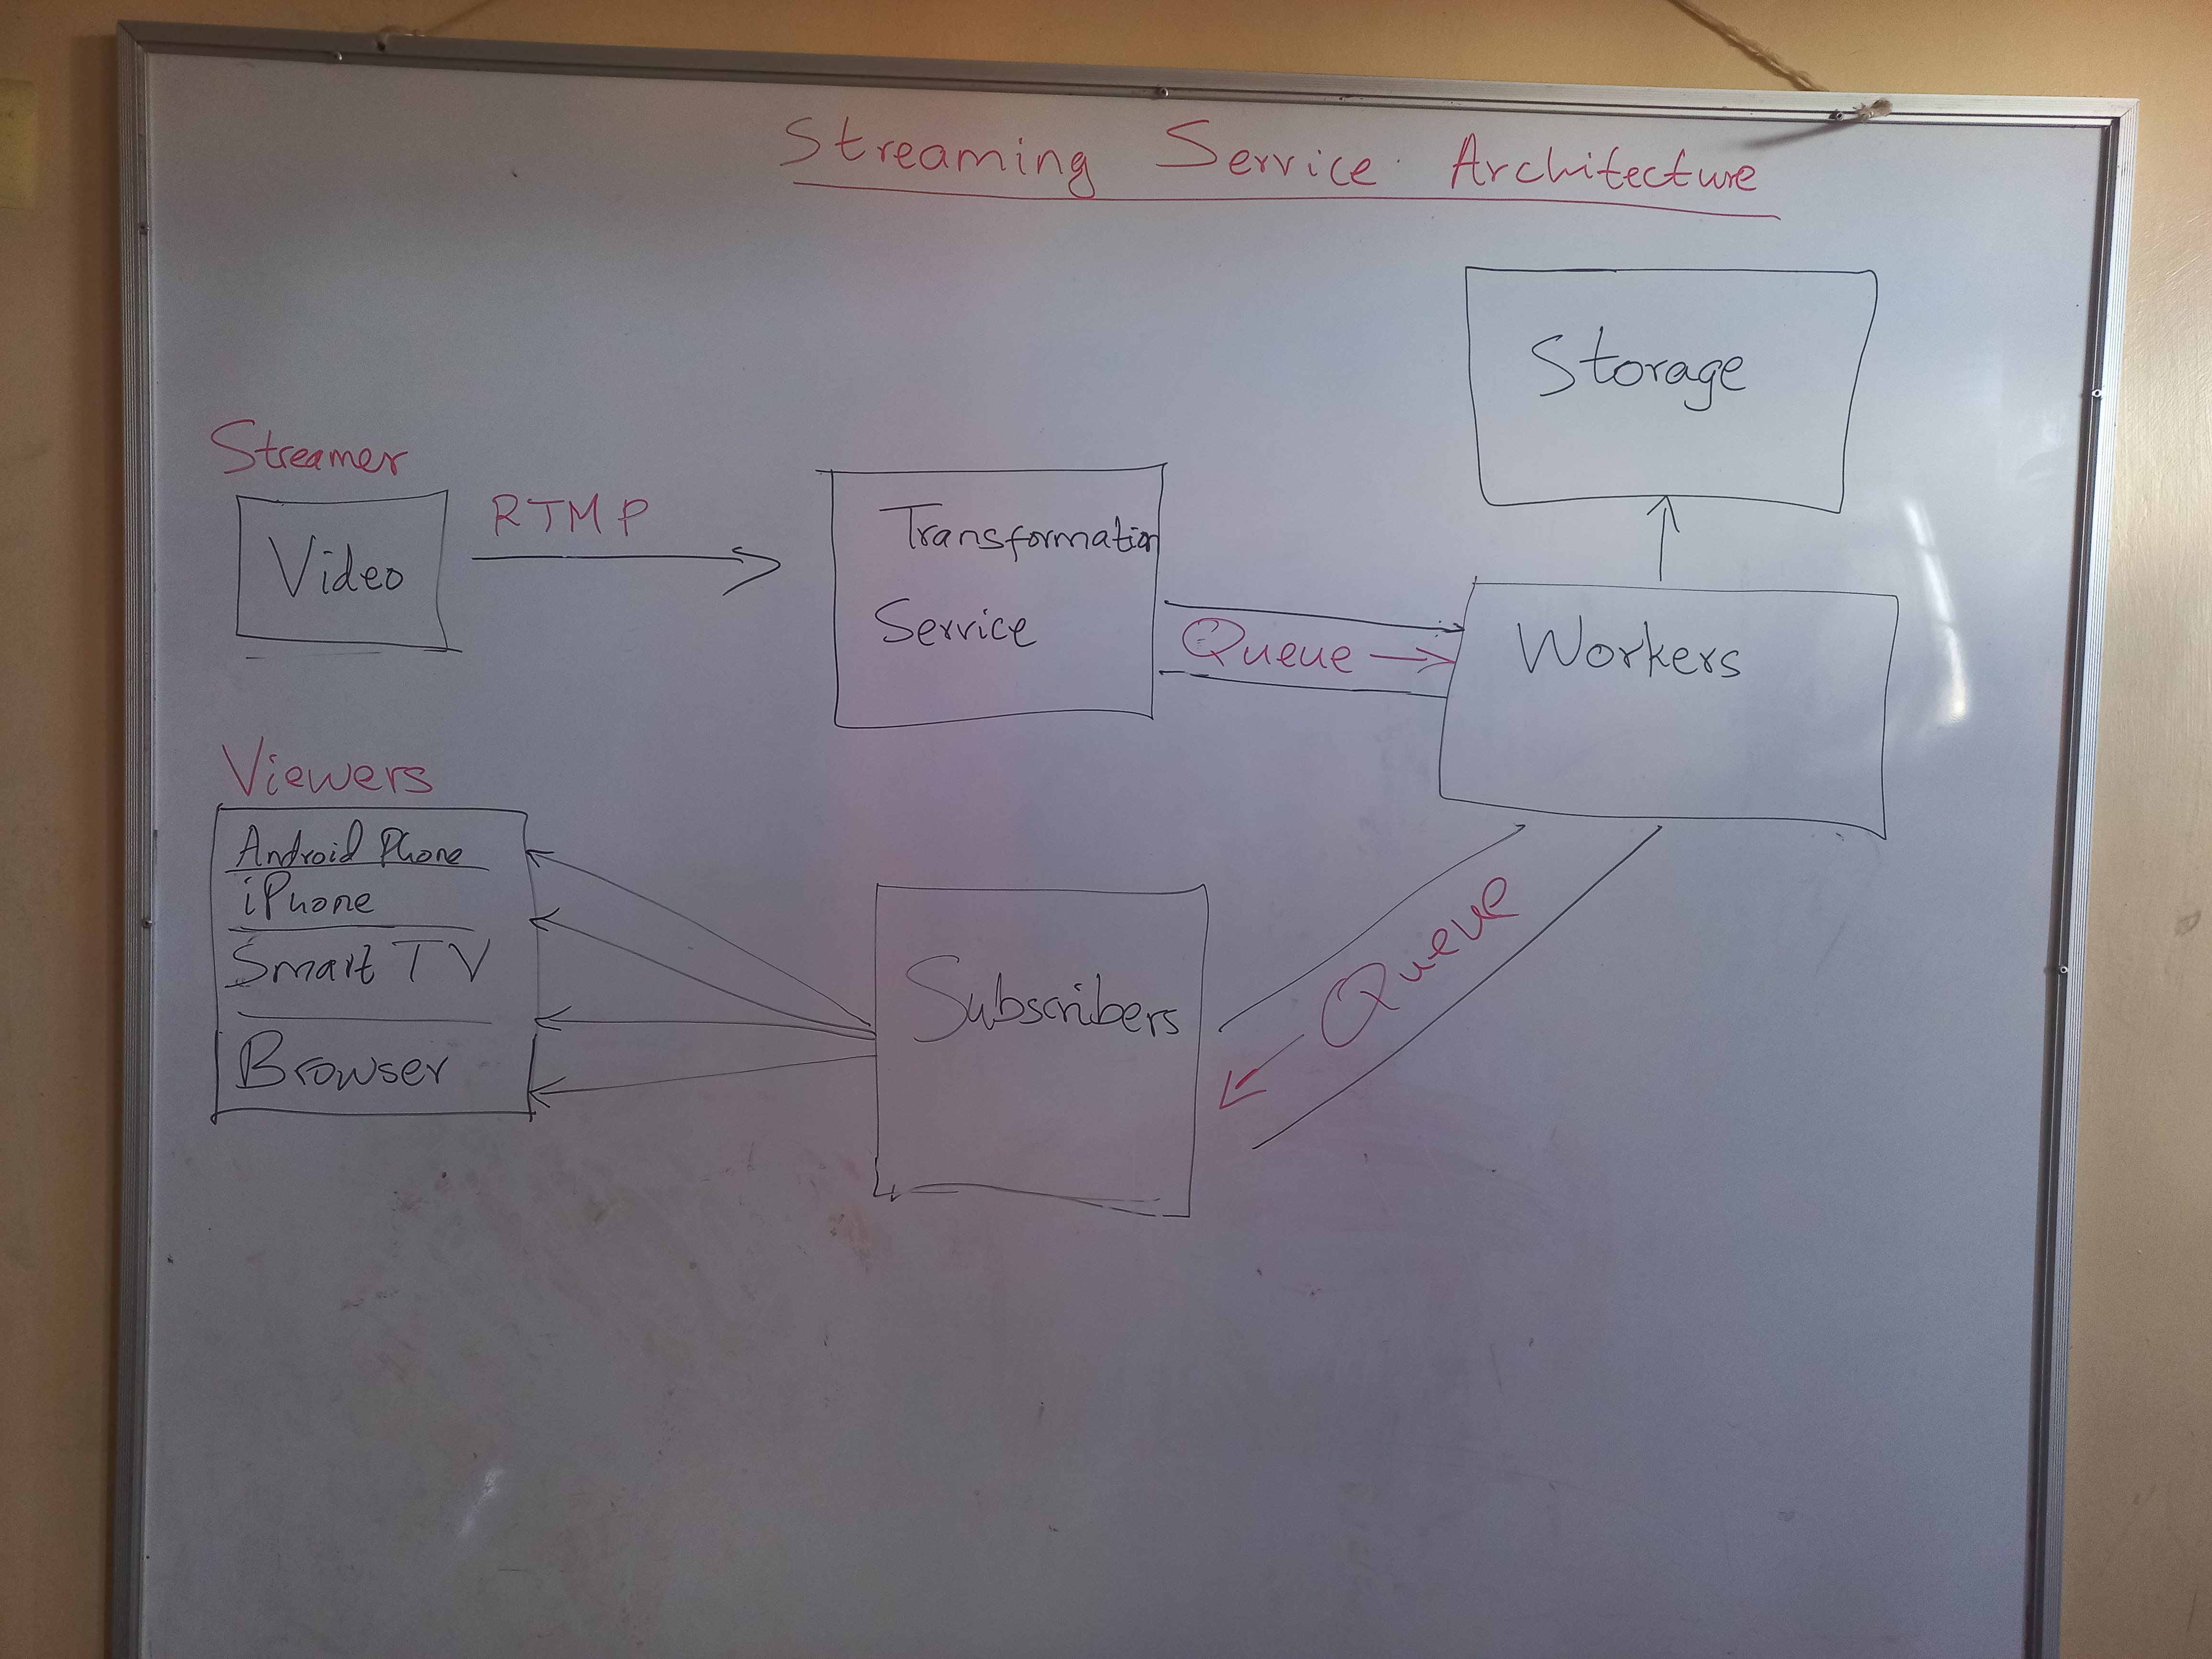 Streaming Service Architecture
Storage
Streamer
Video
RTMP
Transformation
Service
Queue
Workers
Viewers
Android Phone
iPhone
Smart TV
Browser
Subscribers
Queue